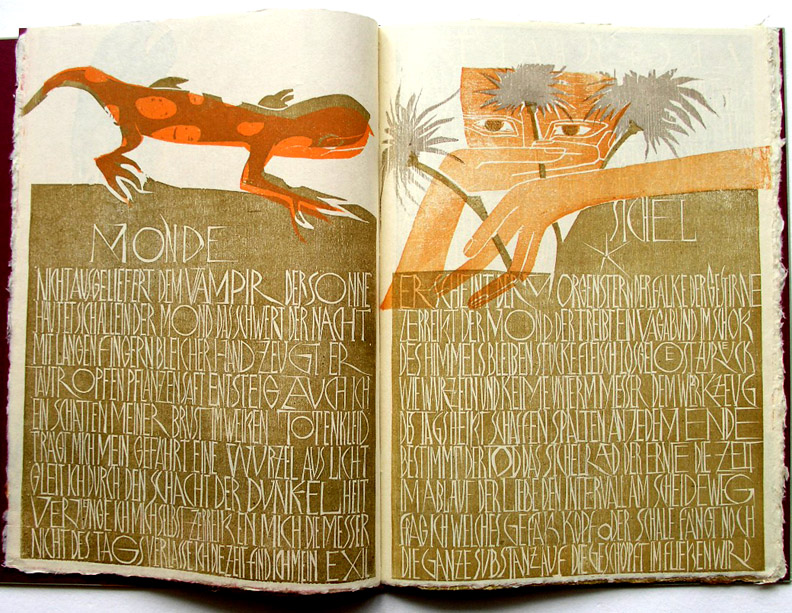 MONDE
NICHT AUSGELIEFERT DEM VAMPIR DER SONNE
HÄUTET SCHATTEN DER MOND DAS SCHWERT DER NACHT
MIT LANGEN FINGERN BLEICHER HAND ZEUGT ER
AUF TROPFEN PFLANZENSAFT ENTSTEIG AUCH ICH
EIN SCHATTEN MEINER BRUST IM WEIẞEN TOTENKLEID
TRÄGT MICH MEIN GEFÄHRT EINE WURZEL AUS LICHT
GLEIT ICH DURCH DEN SCHACHT DER DUNKELHEIT
VERJÜNGE ICH MICH SELBST ZERREIẞEN MICH DIE MESSER
NICHT DES TAGS VERLASSE ICH DIE ZEIT FIND ICH MEIN EXIL
SICHEL
ERSCHEINT DER MORGENSTERN DER FALKE DER GESTIRNE
ZERREIẞT DER MOND DER TREIBT EIN VAGABUND IM SCHOẞ
DES HIMMELS BLEIBEN STÜCKE FLEISCH LOSGELÖST ZURÜCK
WIE WURZELN UND KEIME UNTERM MESSER DEM WERKZEUG
DES TAGS HEIẞT SCHAFFEN SPALTEN AN JEDEM ENDE
BESTIMMT DER TOD DAS SICHELRAD DER ERNTE DIE ZEIT
IM ABLAUF DER LIEBE DEN INTERVALL AM SCHEIDEWEG
FRAG ICH WELCHES GEFÄẞ KOPF ODER SCHALE FÄNGT NOCH
DIE GANZE SUBSTANZ AUF DIE GESCHÖPFT IM FLIEẞEN WIRD